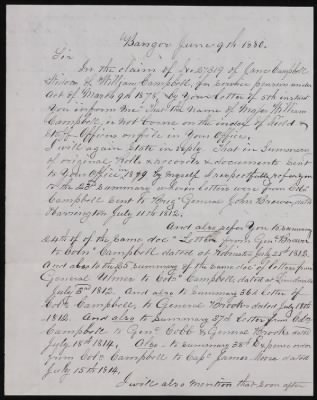 Bangor June 9th 1880.
Sir
In the claim of No 27319 of Jane Campbell
Widow of William Campbell, for service pension under
Act of March 9th 1878, by Your letter of 5th instant
You inform me that the name of Major William
Campbell, is not borne on the index of Field &
Staff Officers on file in Your Office.
I will again State in reply, That in Summary
of original Rolls & records & documents sent
to Your Office, 1879 by myself I respectfully refer you
to the 23d Summary wherein letters were from Colo
Campbell sent to Brig' General John Brewer, dated
Harrington July 11th 1812.
And also refer You to summary
24th of of the same doc' Letter from Genl Brewer
to Colnl Campbell dated at Robinston July 28th 1812.
And also to the summary of the same doc' of letter from
General Ulmer to Colo Campbell, dated at Lincolnville
July 3d 1812. And also to Summary 36th Letter of
Colo Campbell, to General Brooks dated July 18th
1812. And also to Summary 37th Letter from Colo
Campbell to Genl Cobb & General Brooks dated
July 18th 1814. Also to summary 38th Express order
from Colo Campbell to Capt James Moore dated
July 15th 1814.
I will also mention that soon after